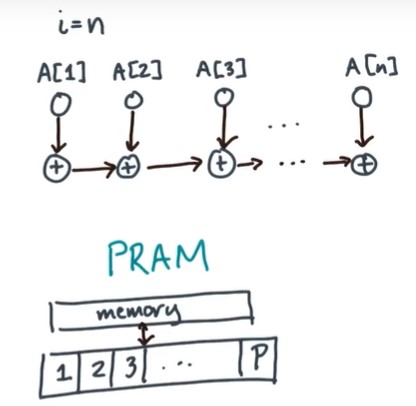 i=n
A[1] A[2] A[3] A[n]
...
+ + + ... +
PRAM
memory
1 2 3 ... P